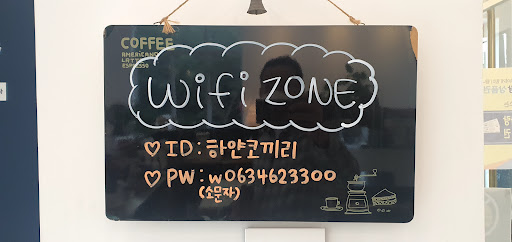 COFFEE
AMERICANO
LATTE
ESPRESSO
Wifi ZONE
♡ ID : 하얀코끼리
♡ PW : w0634623300
(소문자)